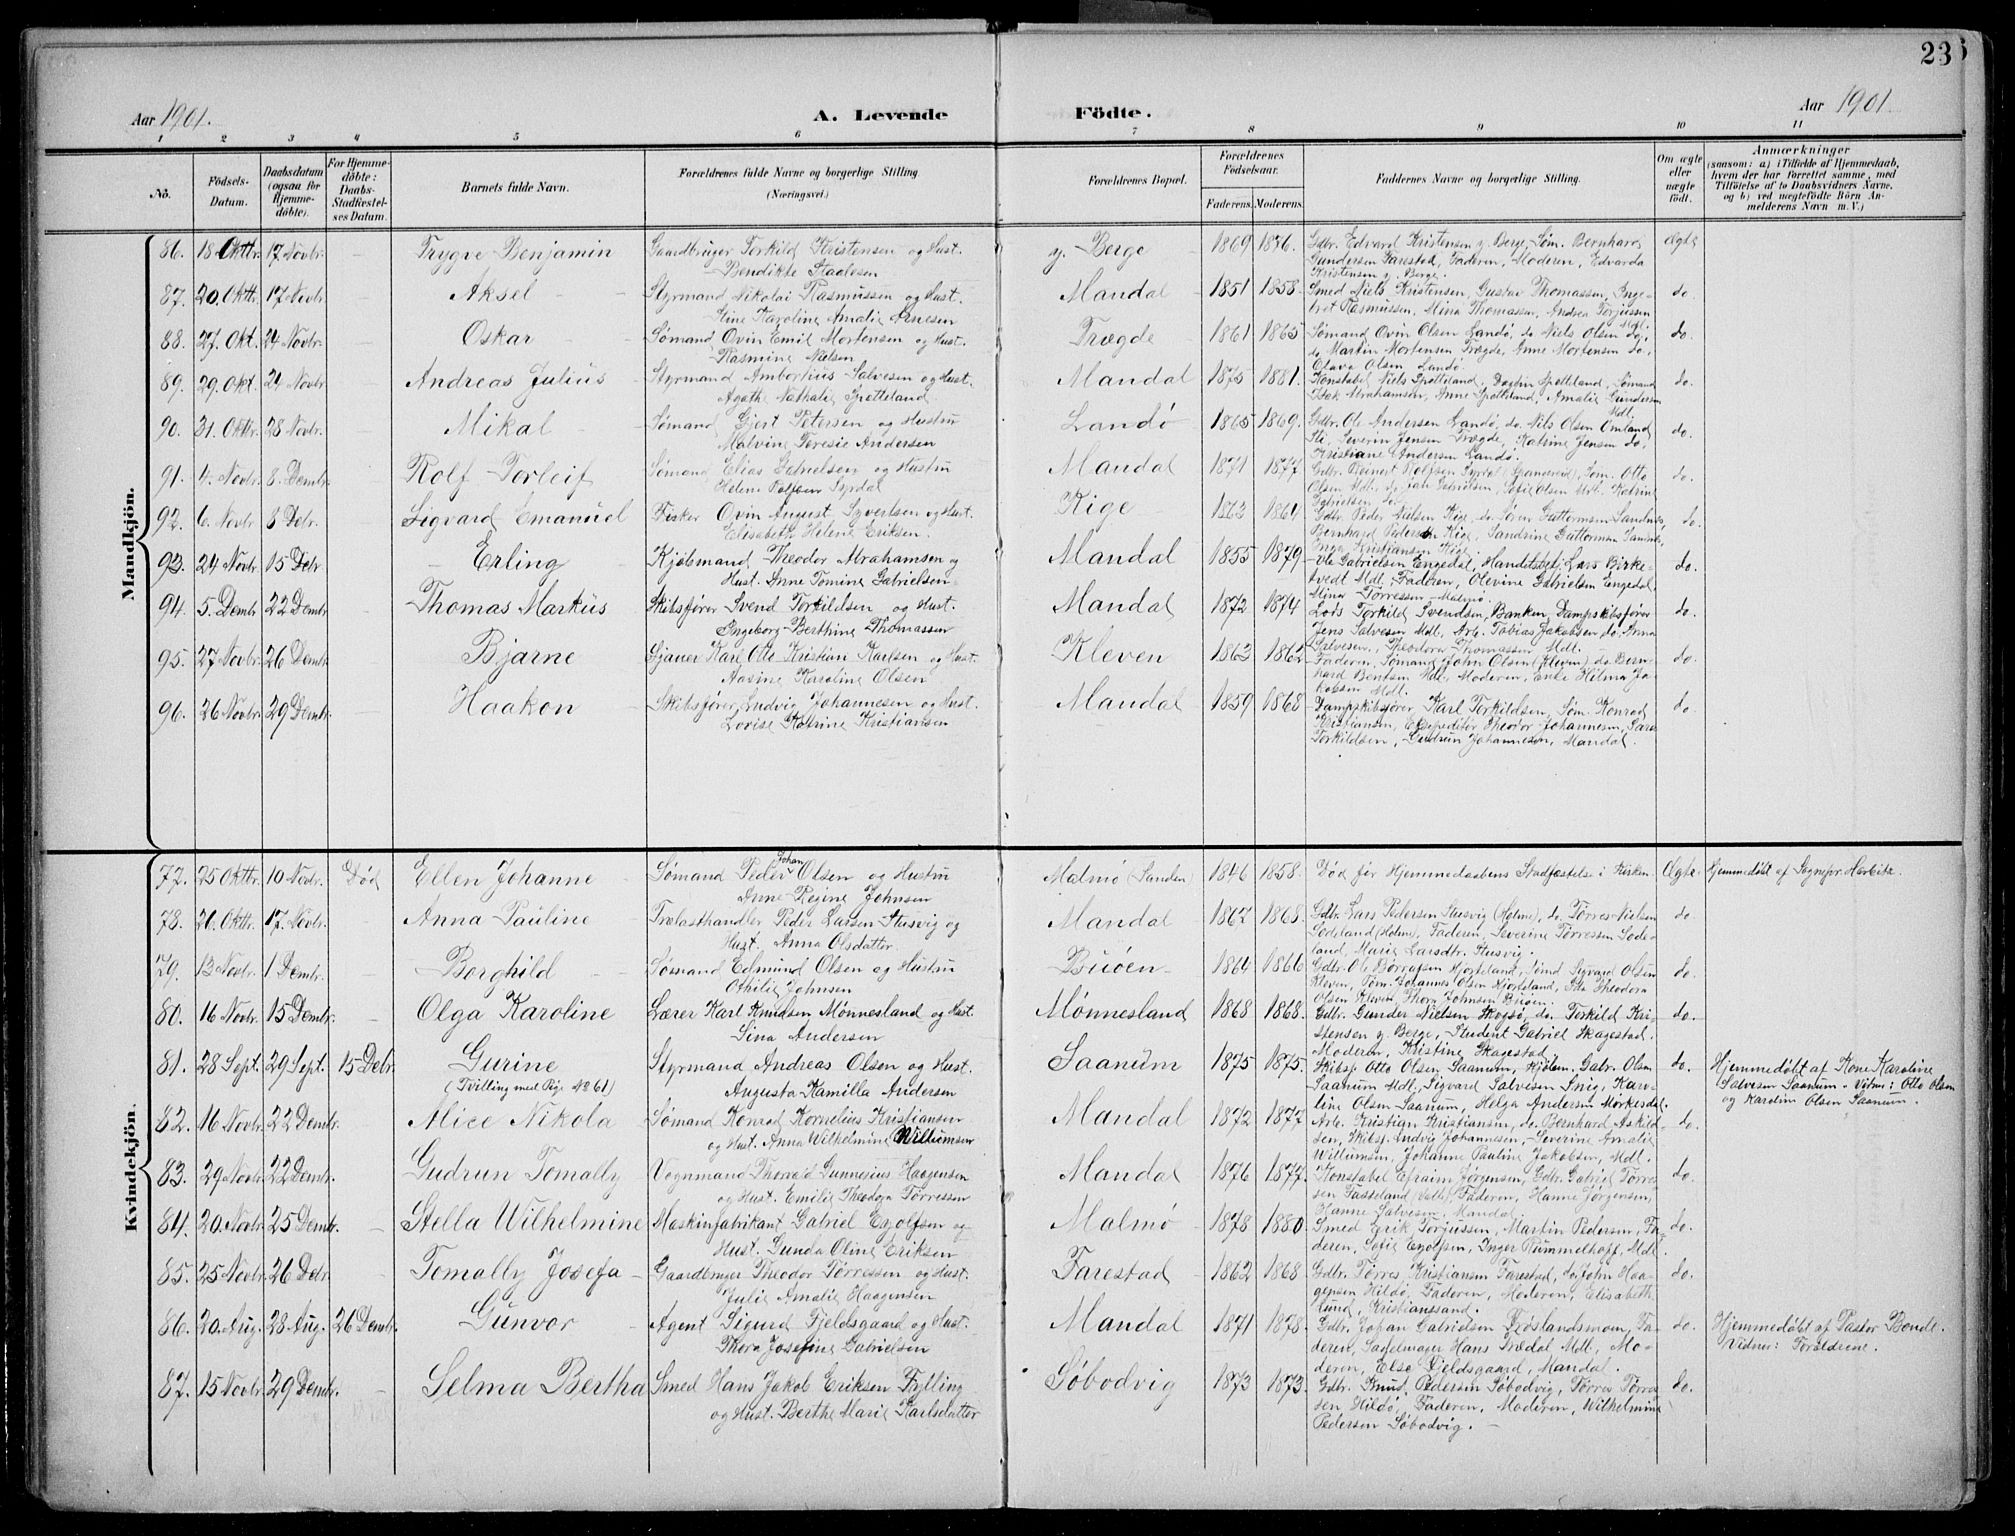 23
Aar 1901.
A. Levende Födte.
Aar 1901.
1 2 3 4 5 6 7 8 9 10 11
No.
Födsels-Datum.
Daabsdatum (ogsaa for Hjemme-döbte).
For Hjemme-döbte: Daabs-Stadfæstel-ses Datum.
Barnets fulde Navn.
Forældrenes fulde Navne og borgerlige Stilling. (Næringsvei.)
Forældrenes Bopæl.
Forældrenes Födselsaar.
Faderens. Moderens.
Faddernes Navne og borgerlige Stilling.
Om ægte eller uægte födt.
Anmærkninger
(saasom: a) i Tilfælde af Hjemmedaab, hvem der har forrettet samme, med Tilföielse af to Daabsvidners Navne, og b) ved uægtefödte Börn An-melderens Navn m. V.)
Mandkjön.
86. 18 Oktbr. 17 Novbr. Trygve Benjamin Gaardbruger Torkild Kristensen og Hust. y. Berge 1869 1876. Gdbr. Edvard Kristensen y. Berge, Søm. Bernhard Ægte
Bendikte Staalesen Gundersen Farestad, Faderen, Moderen, Edvarda
Kristensen y. Berge.
87. 20. Oktbr. 17 Novbr. Aksel Styrmand Nikolai Rasmussen og Hust. Mandal 1851 1858. Smed Niels Kristensen, Gustav Thomassen, Inge- do.
Karoline Amalie Arnesen bret Rasmussen, Mina Thomassen, Andrea Torjussen
Mdl.
88. 27. Okt. 24 Novbr. Oskar Sømand Ovin Emil Mortensen og Hust. Trægde 1861 1863 Sømand Ovin Olsen Landø, do Niels Olsen do, do.
Rasmine Nielsen do Martin Mortensen Trægde, Anne Mortensen do,
Olava Olsen Landø.
89. 29. Okt. 24 Novbr. Andreas Julius Styrmand Ambortius Salvesen og Hust. Mandal 1875 1881. Konstabel Niels Spetteland, Sømand do.
Agathe Nathalie Spetteland Isak Abrahamsen, Anne Spetteland, Amalie Gundersen
Mdl.
90. 31. Oktbr. 28 Novbr. Mikal Sømand Gjert Petersen og Hustru Landø 1865 1869. Gdbr. Ole Andersen Landø, do. Nils Olsen Omland do.
Malvine Teresie Andersen Severin Jensen Trægde, Katrine Jensen do,
Kristiane Andersen Landø.
91. 4. Novbr. 8. Dembr. Rolf Torleif Sømand Elias Gabrielsen og Hustru Mandal 1871 1877 Gdbr. Reinert Rolfsen Syrdal, Søm. Otto do.
Helene Rolfsen Syrdal Olsen Mdl, do. Jan Gabrielsen, Sofie Olsen Mdl. Katrine
Gabrielsen do.
92. 6. Novbr. 8 Debr. Sigvard Emanuel Fisker Ovin August Syvertsen og Hust. Kige 1863 1864 Gdbr. Peder Nielsen Kige, do. Søren Guttormsen Sandnæs, do.
Elisabeth Helene Eriksen. Bernhard Pedersen Kige, Sandrine Guttormsen
Inga Kristiansen Kige.
93. 24 Novbr. 15 Debr. Erling Kjøbmand Theodor Abrahamsen og Mandal 1855 1879 Ole Gabrielsen Engedal, Handelsbetj. Lars Birke- do.
Hust. Anne Tomine Gabrielsen tvedt Mdl. Faderen, Olevine Gabrielsen Engedal
Mina Tørressen Malmø.
94. 5. Dembr. 22 Dembr. Thomas Markus Skibsfører Svend Torkildsen og Hust. Mandal 1872 1874 Lods Torkild Svendsen, Banken, Dampskibsfører do.
Ingeborg Berthine Thomassen Jens Salvesen Mdl, Arb. Tobias Jakobsen do, Anna
Salvesen, Theodora Thomassen Mdl.
95. 27 Novbr. 26 Dembr. Bjarne Sjauer Karl Otto Kristian Karlsen og Hust. Kleven 1863 1862 Faderen, Sømand John Olsen (Kleven), do Bern- do.
Aasine Karoline Olsen hard Bentsen Mdl., Moderen, Enke Hilma Ja-
kobsen Mdl.
96. 26 Novbr. 29 Dembr. Haakon Skibsfører Ludvig Johannesen og Hust. Mandal 1859 1868 Dampskibsfører Karl Torkildsen, Søm. Konrad do.
Lovise Katrine Kristiansen Kristiansen, Expeditør Theodor Johannesen, Sara
Torkildsen, Gudrun Johannesen, Mandal.
Kvindekjön.
77. 25 Oktbr. 10 Novbr. Død Ellen Johanne Sømand Peder Johan Olsen og Hustru Malmø (Sanden) 1846 1858. Død før Hjemmedaabens Stadfæstelse i Kirken. Ægte. Hjemmedøbt af Sognepr. Harbitz.
Anne Regine Johnsen
78. 26. Oktbr. 17. Novbr. Anna Pauline Trælasthandler Peder Larsen Stusvig og Mandal 1867 1868. Gdbr. Lars Pedersen Stusvig (Holme), do. Tørres Nielsen do.
Hust. Anna Olsdatter. Sodeland (Holme), Faderen, Severine Tørressen Sode-
land, Marie Larsdtr. Stusvig.
79. 13 Novbr. 1 Dembr. Borghild Sømand Edmund Olsen og Hustru Buøen 1864 1866 Gdbr. Ole Børresen Hjorteland, Sømd Sigvard Olsen do.
Othilie Johnsen Kleven, Tøm. Johannes Olsen Hjorteland, Theodora
Olsen Kleven, Thora Johnsen Buøen.
80. 16 Novbr. 15 Dembr. Olga Karoline Lærer Karl Knudsen Mønnesland og Hust. Mønnesland 1868 1868. Gdbr. Gunder Nielsen Skogsø, do. Torkild Kri- do.
Sina Andersen stensen y. Berge, Student Gabriel Skagestad.
Moderen, Kristine Skagestad
81. 28 Sept. 29 Sept. 15 Debr. Gurine Styrmand Andreas Olsen og Hust. Saanum 1875 1875. Skibsf. Otto Olsen Saanum, Gabr. Olsen do. Hjemmedøbt af Kone Karoline
(Tvilling med Pige No 61) Augusta Kamilla Andersen Saanum Mdl, Sigvard Salvesen Karo- Salvesen Saanum. Vidner: Otto Olsen
line Olsen Saanum, Helga Andersen Mørkesdal. og Karoline Olsen Saanum.
82. 16 Novbr. 22 Dembr. Alice Nikola Sømand Konrad Kornelius Kristiansen Mandal 1872 1877 Arb. Kristian Kristiansen, do. Bernhard Askild- do.
og Hust. Anna Wilhelmine Willumsen sen, Skibsf. Ludvig Johannesen, Severine Amalie
Willumsen, Johanne Pauline Jakobsen, Mdl.
83. 29 Novbr. 22 Dembr. Gudrun Tomally Vognmand Thorvald Gunnerius Haagensen Mandal 1876 1877. Konstabel Efraim Jørgensen, Gdbr. Gabriel Tørre- do.
og Hust. Emilie Theodora Tørressen sen Fasseland, Faderen, Hanne Jørgensen,
Hanne Salvesen, Mandal.
84. 20. Novbr. 25 Dembr. Stella Wilhelmine Maskinfabrikant Gabriel Egolfsen og Malmø 1878 1880. Smed Erik Torjussen, Martin Pedersen, Fa- do.
Hust. Gunda Oline Eriksen deren, Sofie Egolfsen, Inger Rummelhoff, Mdl.
85. 25 Novbr. 26 Debr. Tomally Josefa Gaardbruger Theodor Tørressen og Hust. Farestad 1862 1868. Gdbr. Tørres Kristiansen Farestad, do. John Haa- do.
Julie Amalie Haagensen gensen Hildø, Faderen, Moderen, Elisabeth
Lund, Kristianssand.
86. 20. Aug. 28 Aug. 26 Dembr. Gunvor Agent Sigurd Fjeldsgaard og Hust. Mandal 1871 1878. Gdbr. Johan Gabrielsen Frøslandsmoen, Fa- do. Hjemmedøbt af Pastor Bonde.
Thora Josefine Gabrielsen deren, Sadelmager Hans Trædal Mdl, Mo- Vidner: Forældrene.
deren, Else Fjeldsgaard, Mandal.
87. 15 Novbr. 29 Dembr. Selma Bertha Smed Hans Jakob Eriksen Fylling Søbodvig 1873 1873. Gdbr. Knut Pedersen Søbodvig, Tørres Tørres- do.
og Hust. Berthe Marie Karlsdatter sen Hildø, Faderen, Moderen, Wilhelmine
Pedersen Søbodvig.